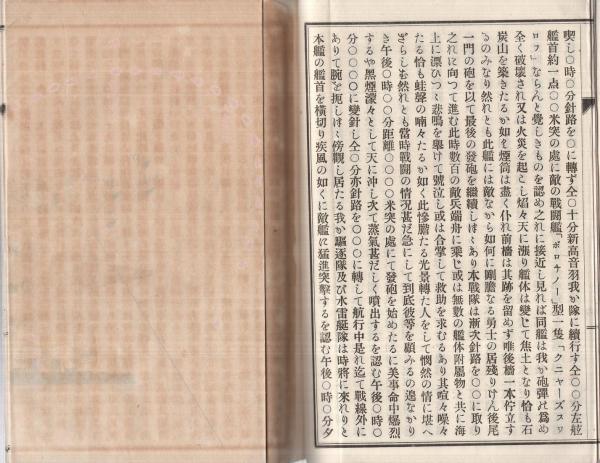 喫し〇時〇分針路を〇に轉ず仝〇十分新高音羽我か隊に續行す仝〇〇分左舷
艦首約一点〇〇米突の處に敵の戰鬪艦「ボロヂノー」型一隻「クニヤーズスワ
ロフ」ならんと覺しきものを認め之れに接近し見れば同艦は我か砲彈の爲め
全く破壊され又は火災を起こし焰々天に漲り艦体は變じて焦土となり恰も石
炭山を築きたるか如く煙筒は盡く仆れ前檣は其跡を留めず唯後檣一本佇立す
るのみなり然れとも此艦には敵なから如何に剛膽なる勇士の居殘りけん後尾
一門の砲を以て最後の發砲を繼續しばしばあり本戰隊は漸次針路を〇〇に取り
之れに向つて進む此時數百の敵兵端舟に乘し或は無數の艦体附屬物と共に海
上に漂ひつゝ悲鳴を擧けて號泣し或は合掌して救助を求むるあり其喧々噪々
たる恰も蛙聲の喃々たるか如く此慘膽たる光景轉た人をして憫然の情に堪へ
ざらしむ然れとも當時戰鬪の情况甚だ急にして到底彼等を顧みるの遑なかり
き午後〇時〇〇分距離〇〇〇〇米突の處にて發砲を始めたるに美事命中爆烈
するや黑煙濛々として天に沖し次て蒸氣甚だしく噴出するを認む午後〇時〇
分〇〇〇〇に變針し仝〇分亦針路を〇〇〇に轉して航行中是れ迄て戰線外に
ありて腕を扼しばしば傍觀し居たる我か驅逐隊及び水雷艇隊は時將に來れりと
本艦の艦首を橫切り疾風の如くに敵艦に猛進突擊するを認む午後〇時〇分夕